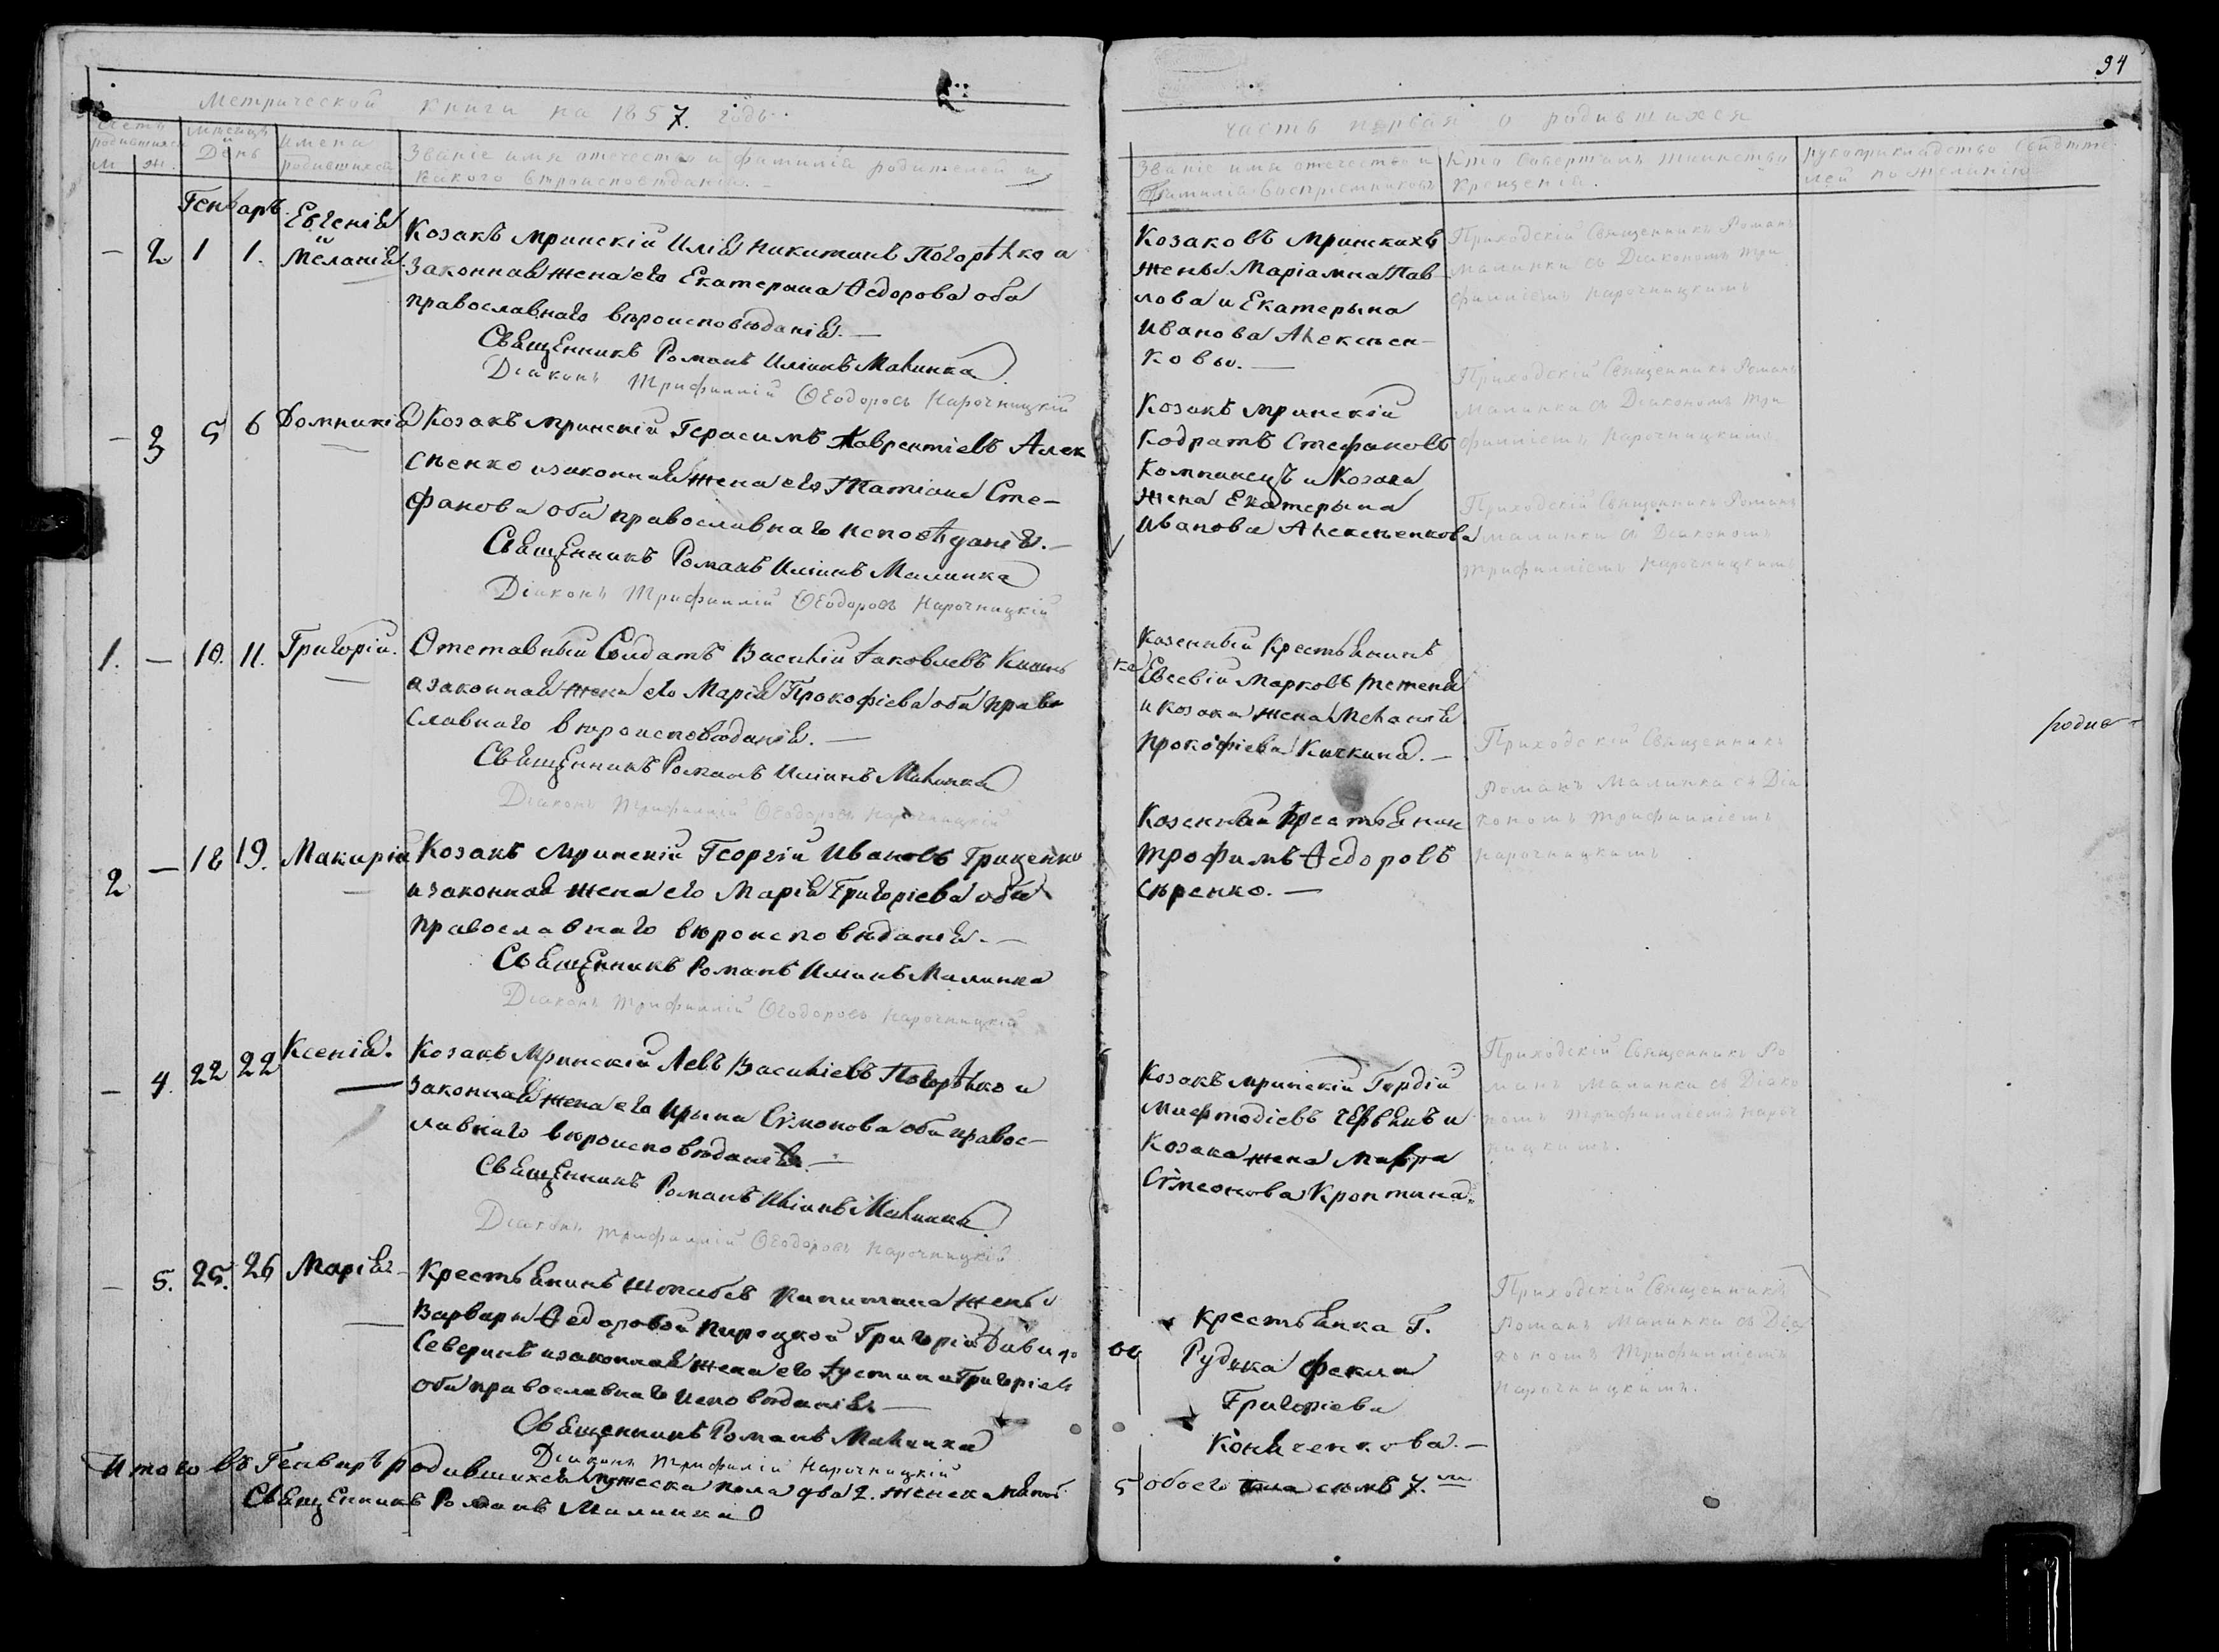 94
Метрической книги на 1857. годъ.
часть первая о родившихся
Счетъ родившихся
М. Ж.
Мѣсяцъ и День
Имена родившихся
Званіе имя отечество и фамилія родителей и
какого вѣроисповѣданія.
Званіе имя отечество и
фамилія воспріемниковъ
Кто совершалъ таинство
крещенія.
рукоприкладство свидѣте-
лей по желанію
Генварь
— 2 1 1. Евгенія
и
Меланія.
Козакъ мринскій Илія Никитинъ Погорѣлко и
законная жена его Екатерина Ѳедорова оба
православнаго вѣроисповѣданія. —
Священникъ Романъ Иліинъ Малинка
Діаконъ Трифиллій Ѳеодоровъ Нарочницкій
Козаковъ мринскихъ
жены Маріамна Пав-
лова и Екатерына
Иванова Алексѣен-
ковы. —
Приходскій Священникъ Романъ
Малинка съ Діакономъ Три
филліемъ Нарочницкимъ
— 3 5 6 Домникія
Козакъ мринскій Герасимъ Лаврентіевъ Алек
сѣенко и законная жена его Татіана Сте-
фанова оба православнаго исповѣданія. —
Священникъ Романъ Иліинъ Малинка
Діаконъ Трифиллій Ѳеодоровъ Нарочницкій
Козакъ мринскій
Кодратъ Стефановъ
Компанецъ и Козака
жена Екатерына
Иванова Алексѣенкова
Приходскій Священникъ Романъ
Малинка съ Діакономъ Три
филліемъ Нарочницкимъ
Приходскій Священникъ Романъ
Малинка съ Діакономъ
Трифилліемъ Нарочницкимъ
1. — 10. 11. Григорій.
Отставный Солдатъ Василій Іаковлевъ
и законная жена его Марія Прокофіева оба право
славнаго вѣроисповѣданія. —
Священникъ Романъ Иліинъ Малинка
Діаконъ Трифиллій Ѳеодоровъ Нарочницкій
Козенный Крестьянинъ
Евсевій Марковъ
и козака жена Меланія
Прокофіева Кичкина. —
Приходскій Священникъ
Романъ Малинка съ Діа
кономъ Трифилліемъ
Нарочницкимъ
родив-
2 — 18 19. Макарій
Козакъ Мринскій Георгій Ивановъ Гриценко
и законная жена его Марія Григоріева оба
православнаго вѣроисповѣданія. —
Священникъ Романъ Иліинъ Малинка
Діаконъ Трифиллій Ѳеодоровъ Нарочницкій
Козенный Крестьянин
Трофимъ Ѳедоровъ
Сѣренко. —
— 4. 22 22 Ксенія.
Козакъ Мринскій Левъ Василіевъ Погорѣлко и
законная жена его Ирына Сѵмонова оба правос-
лавнаго вѣроисповѣданія. —
Священникъ Романъ Иліинъ Малинка
Діаконъ Трифиллій Ѳеодоровъ Нарочницкій
Козакъ мринскій Гордій
Мефтодіевъ Червякъ и
Козака жена Мавра
Сѵмеонова
Приходскій Священникъ Ро
манъ Малинка съ Діако
номъ Трифилліемъ Нароч
ницкимъ.
— 5. 25. 26 Марія —
Крестьянинъ Штабсъ Капитана жены
Варвары Ѳедоровой Григорій
Северинъ и законная жена его Іустина Григоріев
оба православнаго исповѣданія —
Священникъ Романъ Малинка
Діаконъ Трифилій Нарочницкій
Крестьянка Г.
Рудяка Фекла
Григоріева
Коняченкова. —
Приходскій Священникъ
Романъ Малинка съ Діа
кономъ Трифилліемъ
Нарочницкимъ.
Итого въ Генварѣ родившихся мужеска пола два 2. женска
5 обоего пола семь 7. —
Священникъ Романъ Малинка